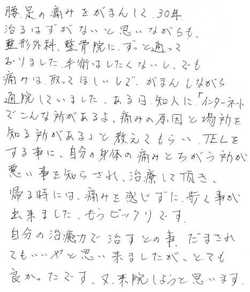 腰足の痛みをがまんして、30年
治るはずがないと思いながらも、
整形外科、整骨院に、ずっと通って
おりました。手術はしたくないし、でも
痛みは取ってほしいしで、がまんしながら
通院していました。ある日知人に「インターネット
でこんな所があるよ、痛みの原因と場所を
知る所がある」と教えてもらい、TELを
する事に、自分の身体の痛みとちがう場所が
悪い事を知らされ、治療して頂き、
帰る時には、痛みを感じずに、歩く事が
出来ました、もうビックリです。
自分の治癒力で治すとの事、だまされ
てもいいやと思い来ましたが、とても
良かったです。又、来院しようと思います。